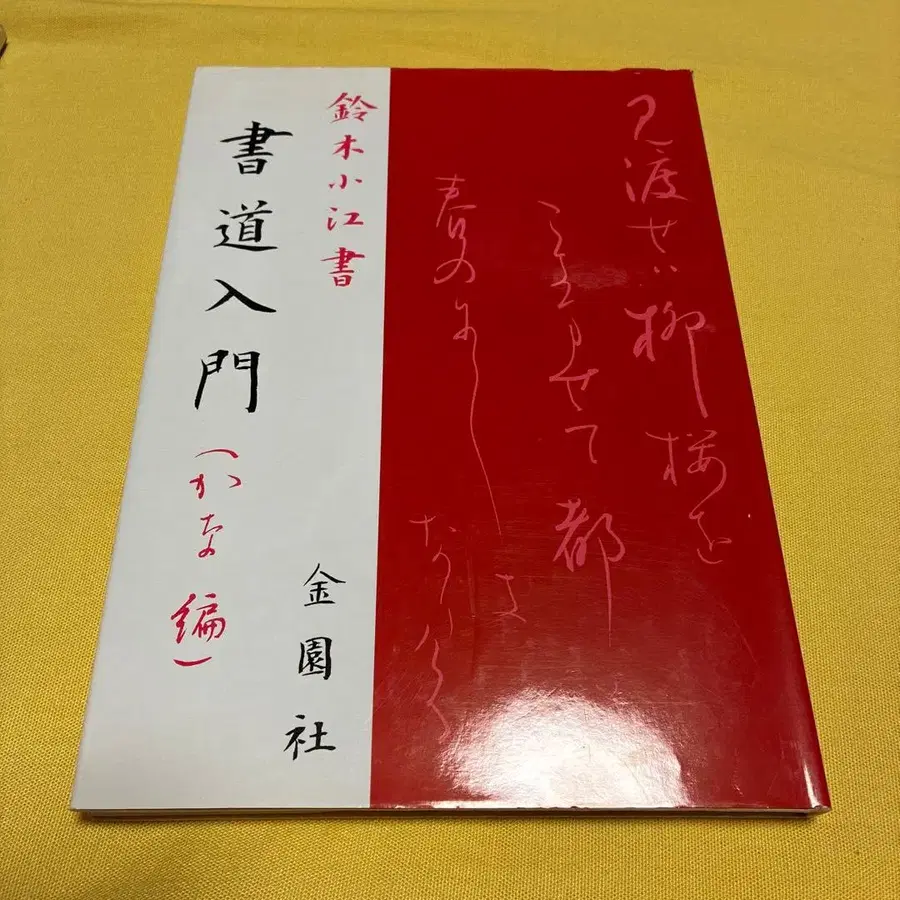 見渡せは柳桜を
こきませて都
春のにしき
なりける
鈴木小江書
書道入門(かな編)
金園社